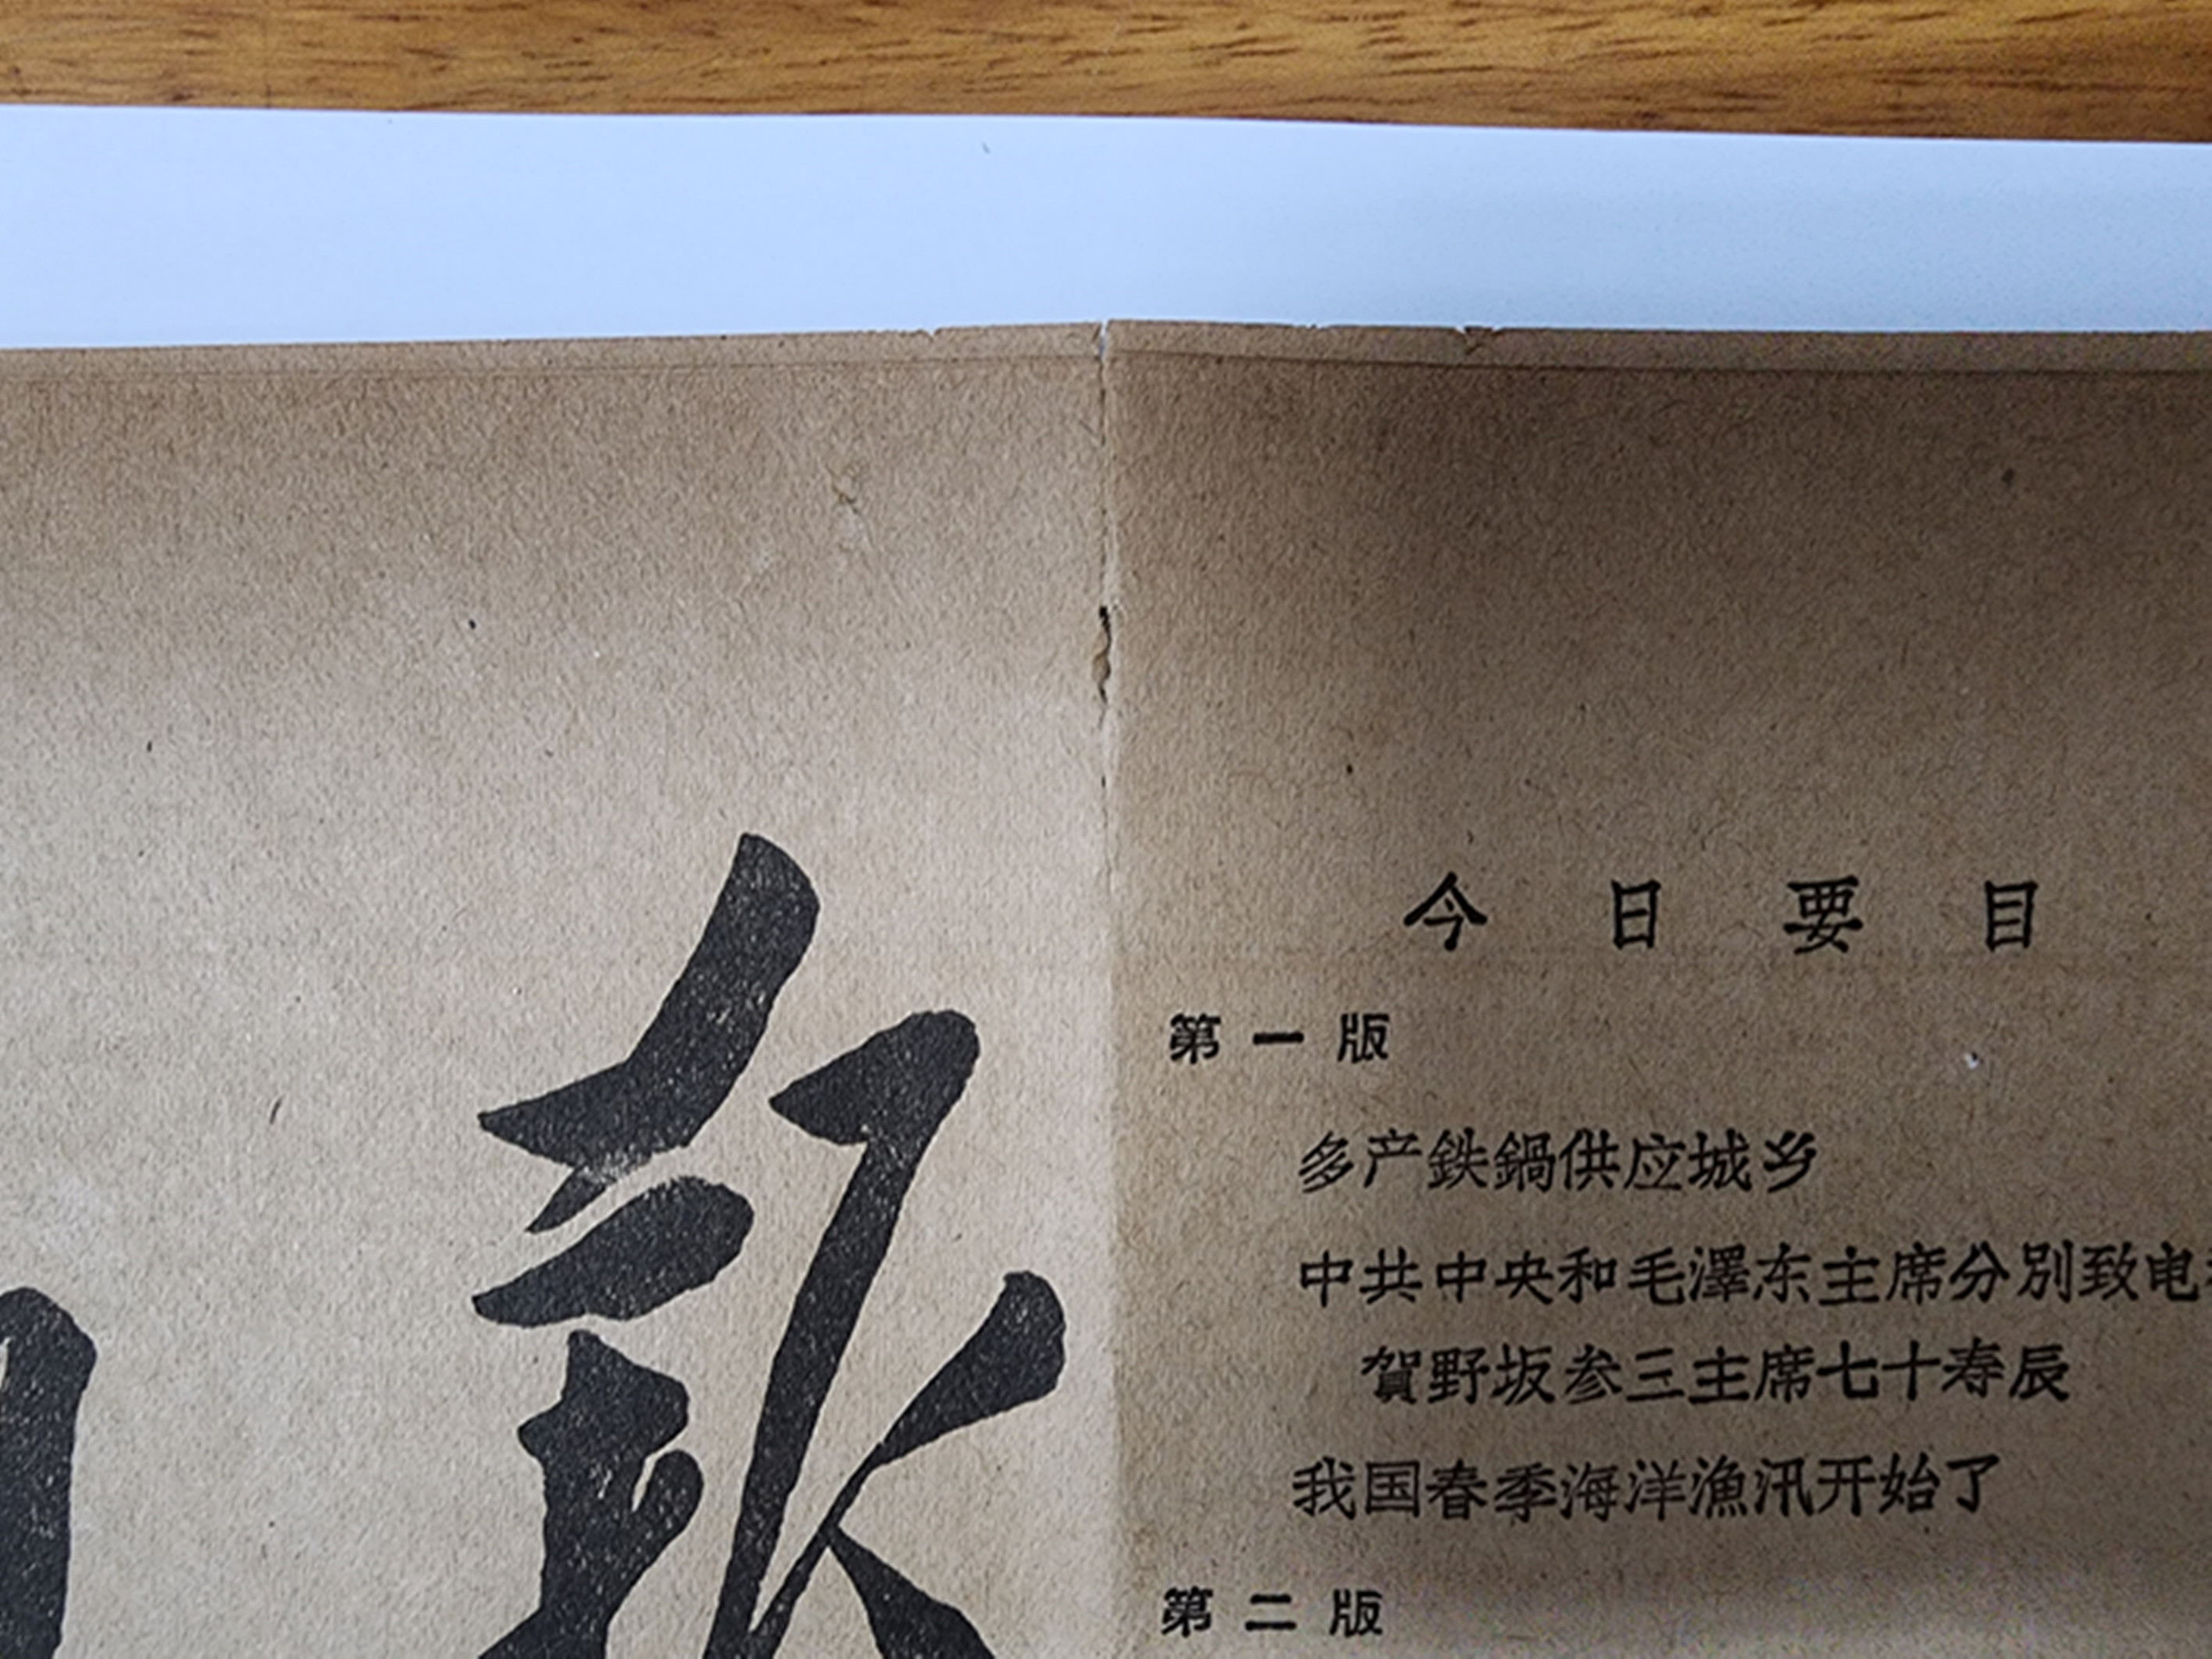 報
今日要目
第一版
多产鉄鍋供应城乡
中共中央和毛澤东主席分別致电
賀野坂参三主席七十寿辰
我国春季海洋漁汛开始了
第二版